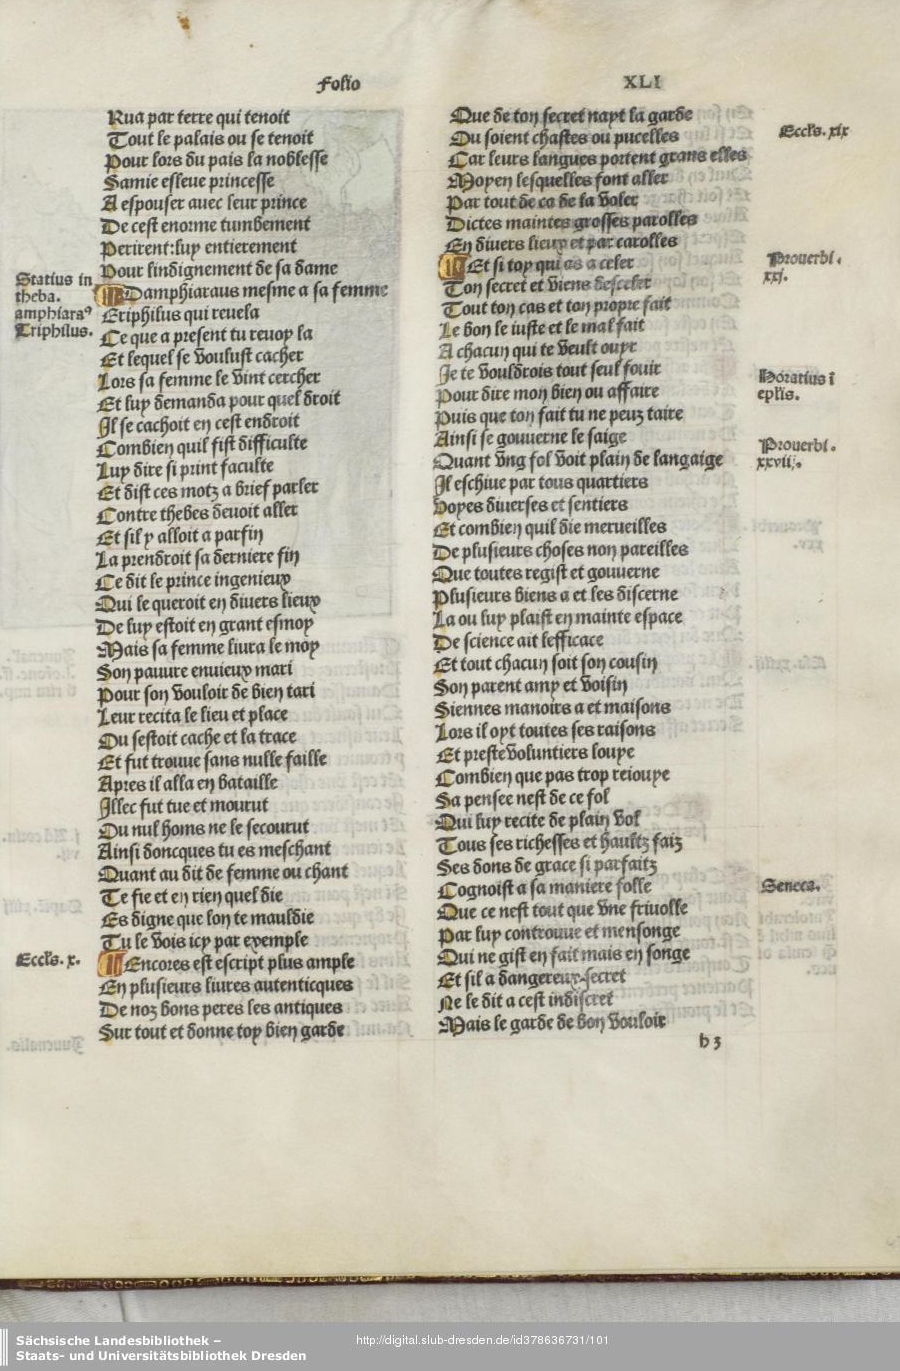 Folio
XLI
Rua par terre qui tenoit
Tout le palais ou se tenoit
Pour lors du pais la noblesse
Samie esleue princesse
A espouser auec leur prince
De cest enorme tumbement
Perirent: luy entierement
Pour lindignement de sa dame
Damphiaraus mesme a sa femme
Eriphilus qui reuela
Ce que a present tu reuoy la
Et lequel se voulust cacher
Lors sa femme le vint cercher
Et luy demanda pour quel droit
Il se cachoit en cest endroit
Combien quil fist difficulte
Luy dire si print faculte
Et dist ces motz a brief parler
Contre thebes deuoit aller
Et sil y alloit a parfin
La prendroit sa derniere fin
Ce dit le prince ingenieux
Qui le queroit en diuers lieux
De luy estoit en grant esmoy
Mais sa femme liura le moy
Son pauure enuieux mari
Pour son vouloir de bien tari
Leur recita le lieu et place
Ou sestoit cache et la trace
Et fut trouue sans nulle faille
Apres il alla en bataille
Illec fut tue et mourut
Ou nul homs ne le secourut
Ainsi doncques tu es meschant
Quant au dit de femme ou chant
Te fie et en rien quel die
Es digne que lon te mauldie
Tu le vois icy par exemple
Encores est escript plus ample
En plusieurs liures autenticques
De noz bons peres les antiques
Sur tout et donne toy bien garde
Statius in
theba.
amphiaraꝰ
Triphilus.
Eccl's. x.
Que de ton secret nayt la garde
Ou soient chastes ou pucelles
Car leurs langues portent grans elles
Moyen lesquelles font aller
Par tout de ca de la voler
Dictes maintes grosses parolles
En diuers lieux et par carolles
Et si toy qui as a celer
Ton secret et viens desceler
Tout ton cas et ton propre fait
Le bon le iuste et le mal fait
A chacun qui te veult ouyr
Je te vouldrois tout seul fouir
Pour dire mon bien ou affaire
Puis que ton fait tu ne peuz taire
Ainsi se gouuerne le saige
Quant vng fol voit plain de langaige
Il eschiue par tous quartiers
Voyes diuerses et sentiers
Et combien quil die merueilles
De plusieurs choses non pareilles
Que toutes regist et gouuerne
Plusieurs biens a et les discerne
La ou luy plaist en mainte espace
De science ait lefficace
Et tout chacun soit son cousin
Son parent amy et voisin
Siennes manoirs a et maisons
Lors il oyt toutes ses raisons
Et preste voluntiers louye
Combien que pas trop reiouye
Sa pensee nest de ce fol
Qui luy recite de plain vol
Tous ses richesses et haultz faiz
Ses dons de grace si parfaitz
Cognoist a sa maniere folle
Que ce nest tout que vne friuolle
Par luy controuue et mensonge
Qui ne gist en fait mais en songe
Et sil a dangereux secret
Ne le dit a cest indiscret
Mais le garde de bon vouloir
h 3
Eccl's. xix
Prouerbi.
xxj.
Horatius ī
epl'is.
Prouerbi.
xxvii.
Seneca.
Sächsische Landesbibliothek –
Staats- und Universitätsbibliothek Dresden
http://digital.slub-dresden.de/id378636731/101